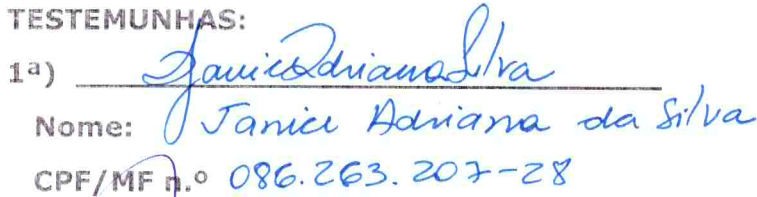 TESTEMUNHAS:
1ª) Janice Adriana Silva
Nome: Janice Adriana da Silva
CPF/MF n.º 086.263.207-28